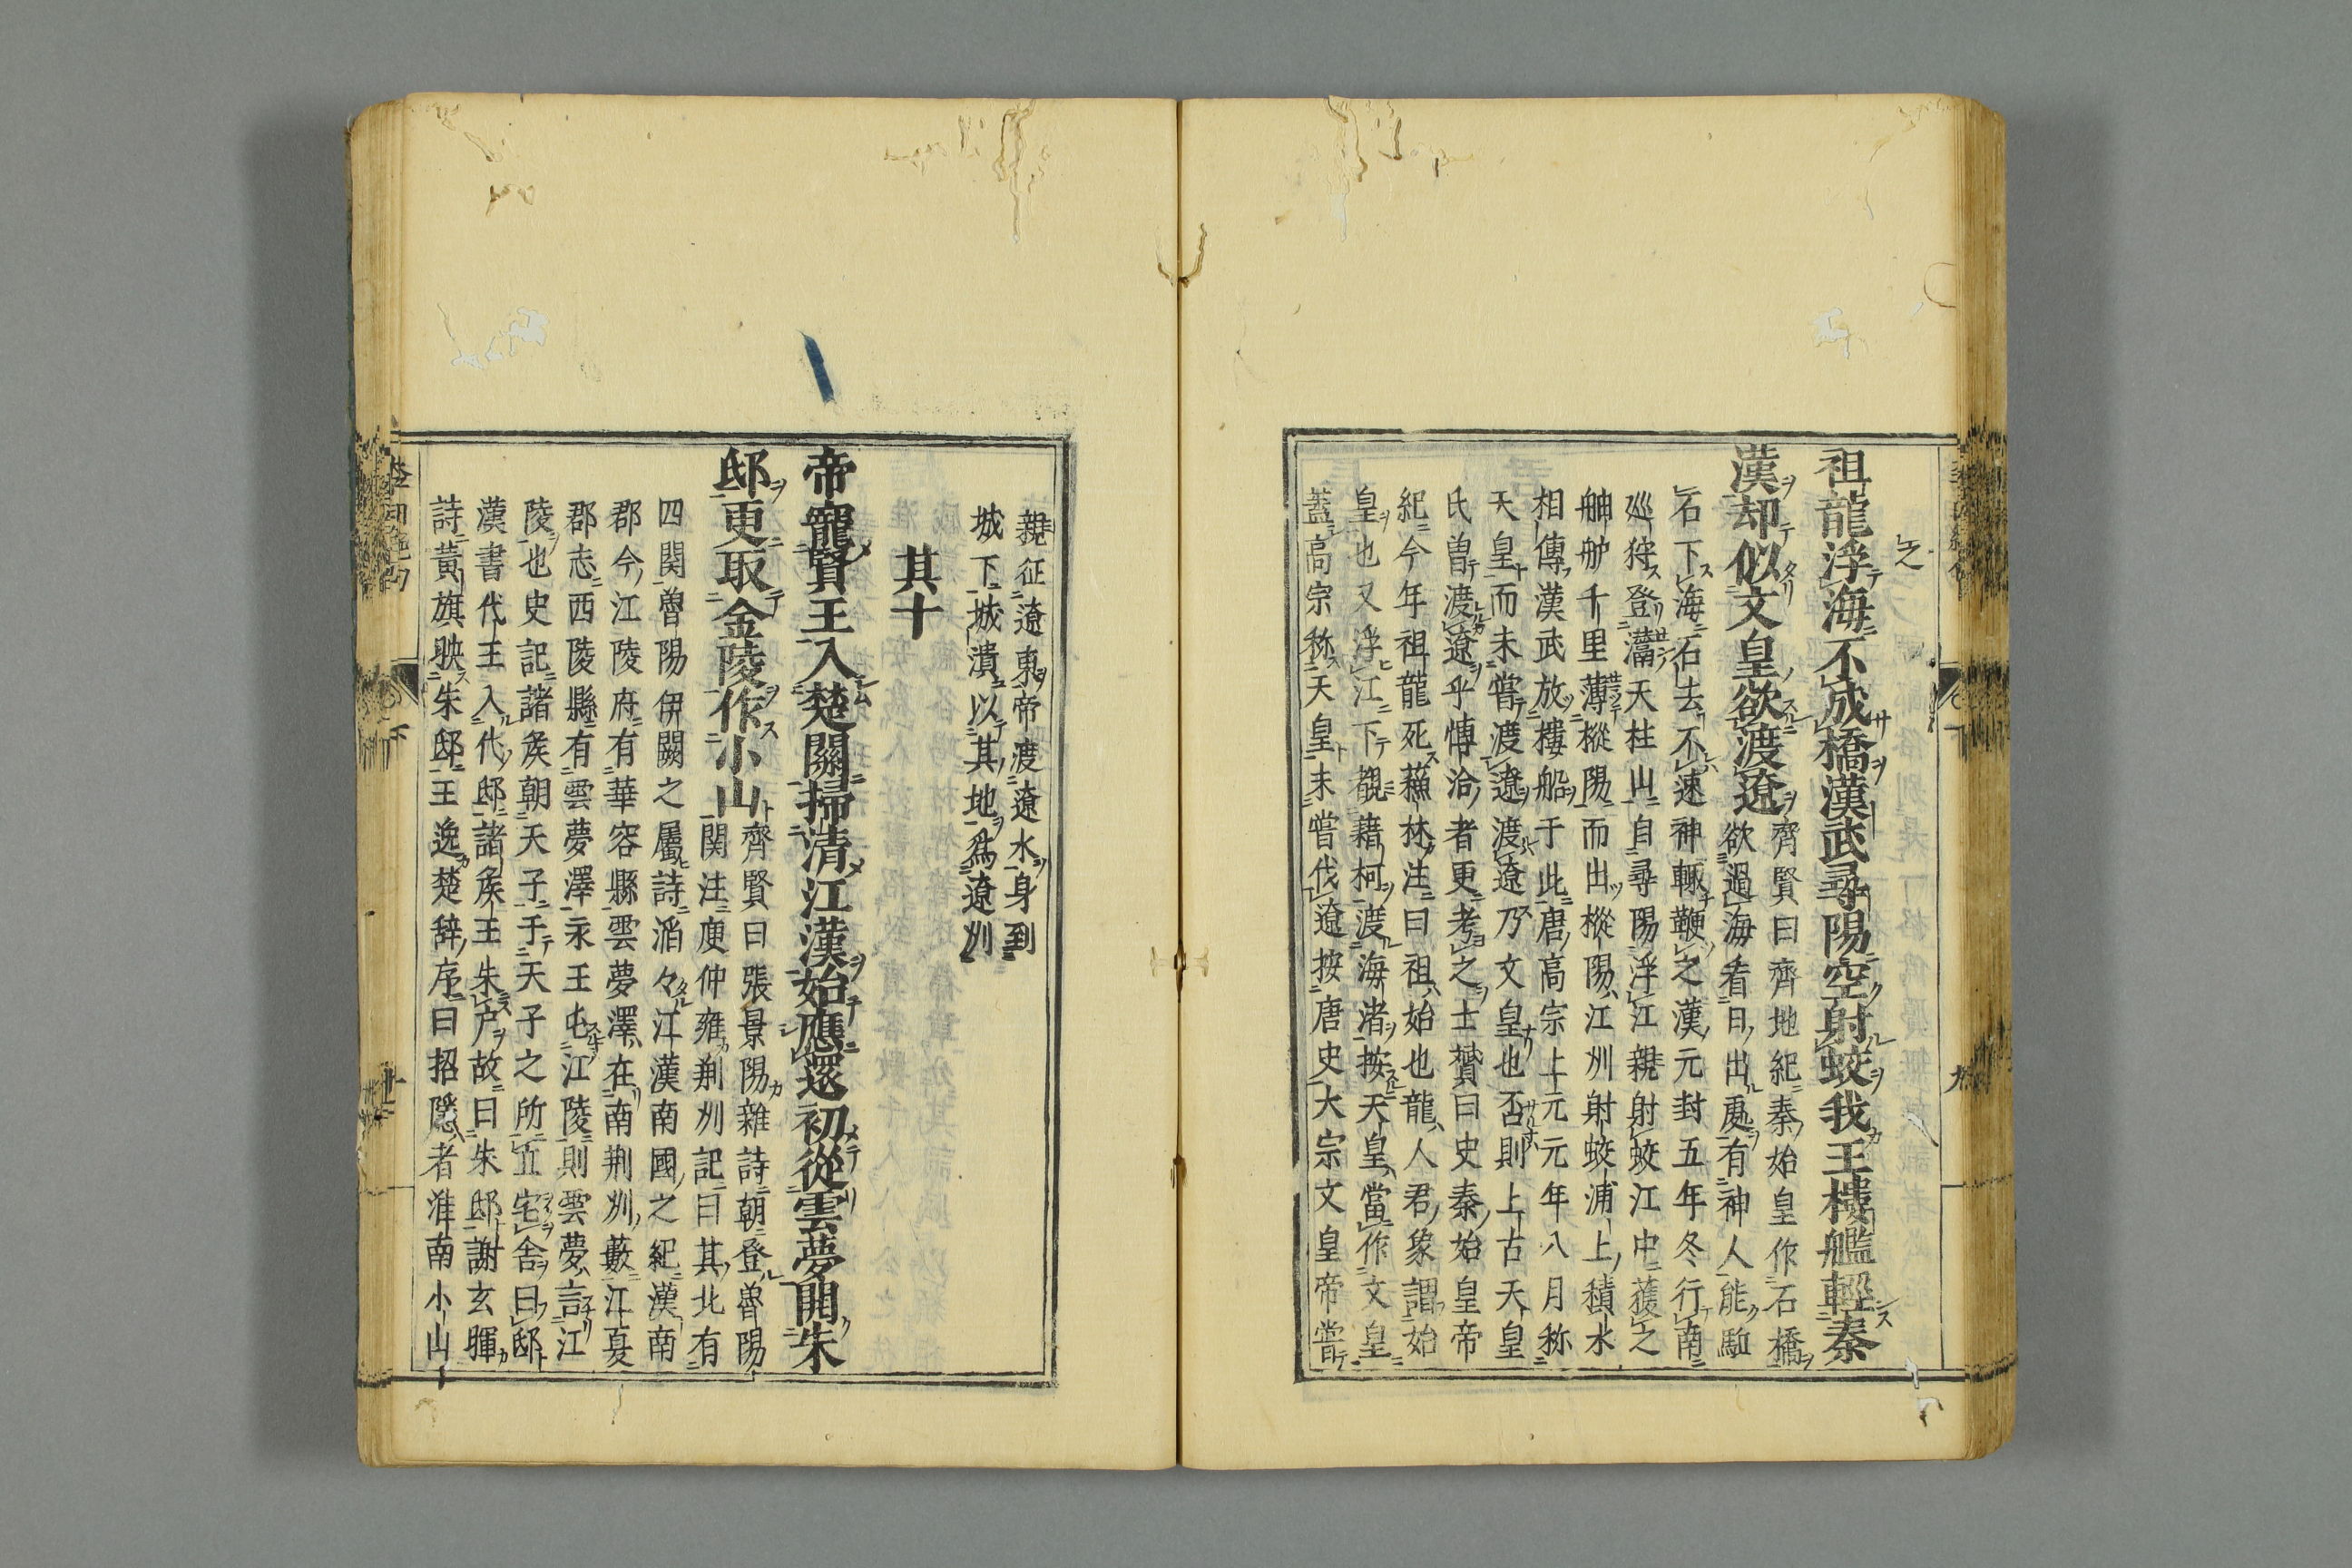 祖龍浮海不成橋漢武尋陽空射蛟我王樓艦輕秦
漢却似文皇欲渡遼
齊賢曰齊地紀秦始皇作石橋
欲過海看日出處有神人能駈
石下海石去不速神輙鞭之漢元封五年冬行南
巡狩登灊天柱山自尋陽浮江親射蛟江中獲之
舳舻千里薄樅陽而出樅陽江州射蛟浦上積水
相傳漢武放樓船于此唐高宗上元元年八月称
天皇而未嘗渡遼渡遼乃文皇也否則上古天皇
氏曽渡遼乎博洽者更考之士贇曰史秦始皇帝
紀今年祖龍死蘓林注曰祖始也龍人君象謂始
皇也又浮江下觀藉柯渡海渚按天皇當作文皇
蓋高宗称天皇未嘗伐遼按唐史大宗文皇帝嘗
親征遼東帝渡遼水身到
城下城潰以其地為遼州
其十
帝寵賢王入楚關掃清江漢始應還初從雲夢開朱
邸更取金陵作小山
齊賢曰張景陽雜詩朝登魯陽
関注庾仲雍荆州記曰其北有
四関魯陽伊闕之屬詩滔々江漢南國之紀漢南
郡今江陵府有華容縣雲夢澤在南荆州藪江夏
郡志西陵縣有雲夢澤永王屯江陵則雲夢言江
陵也史記諸矦朝天子于天子之所立宅舍曰邸
漢書代王入代邸諸矦王朱户故曰朱邸謝玄暉
詩黄旗映朱邸王逸楚辞序曰招隠者淮南小山